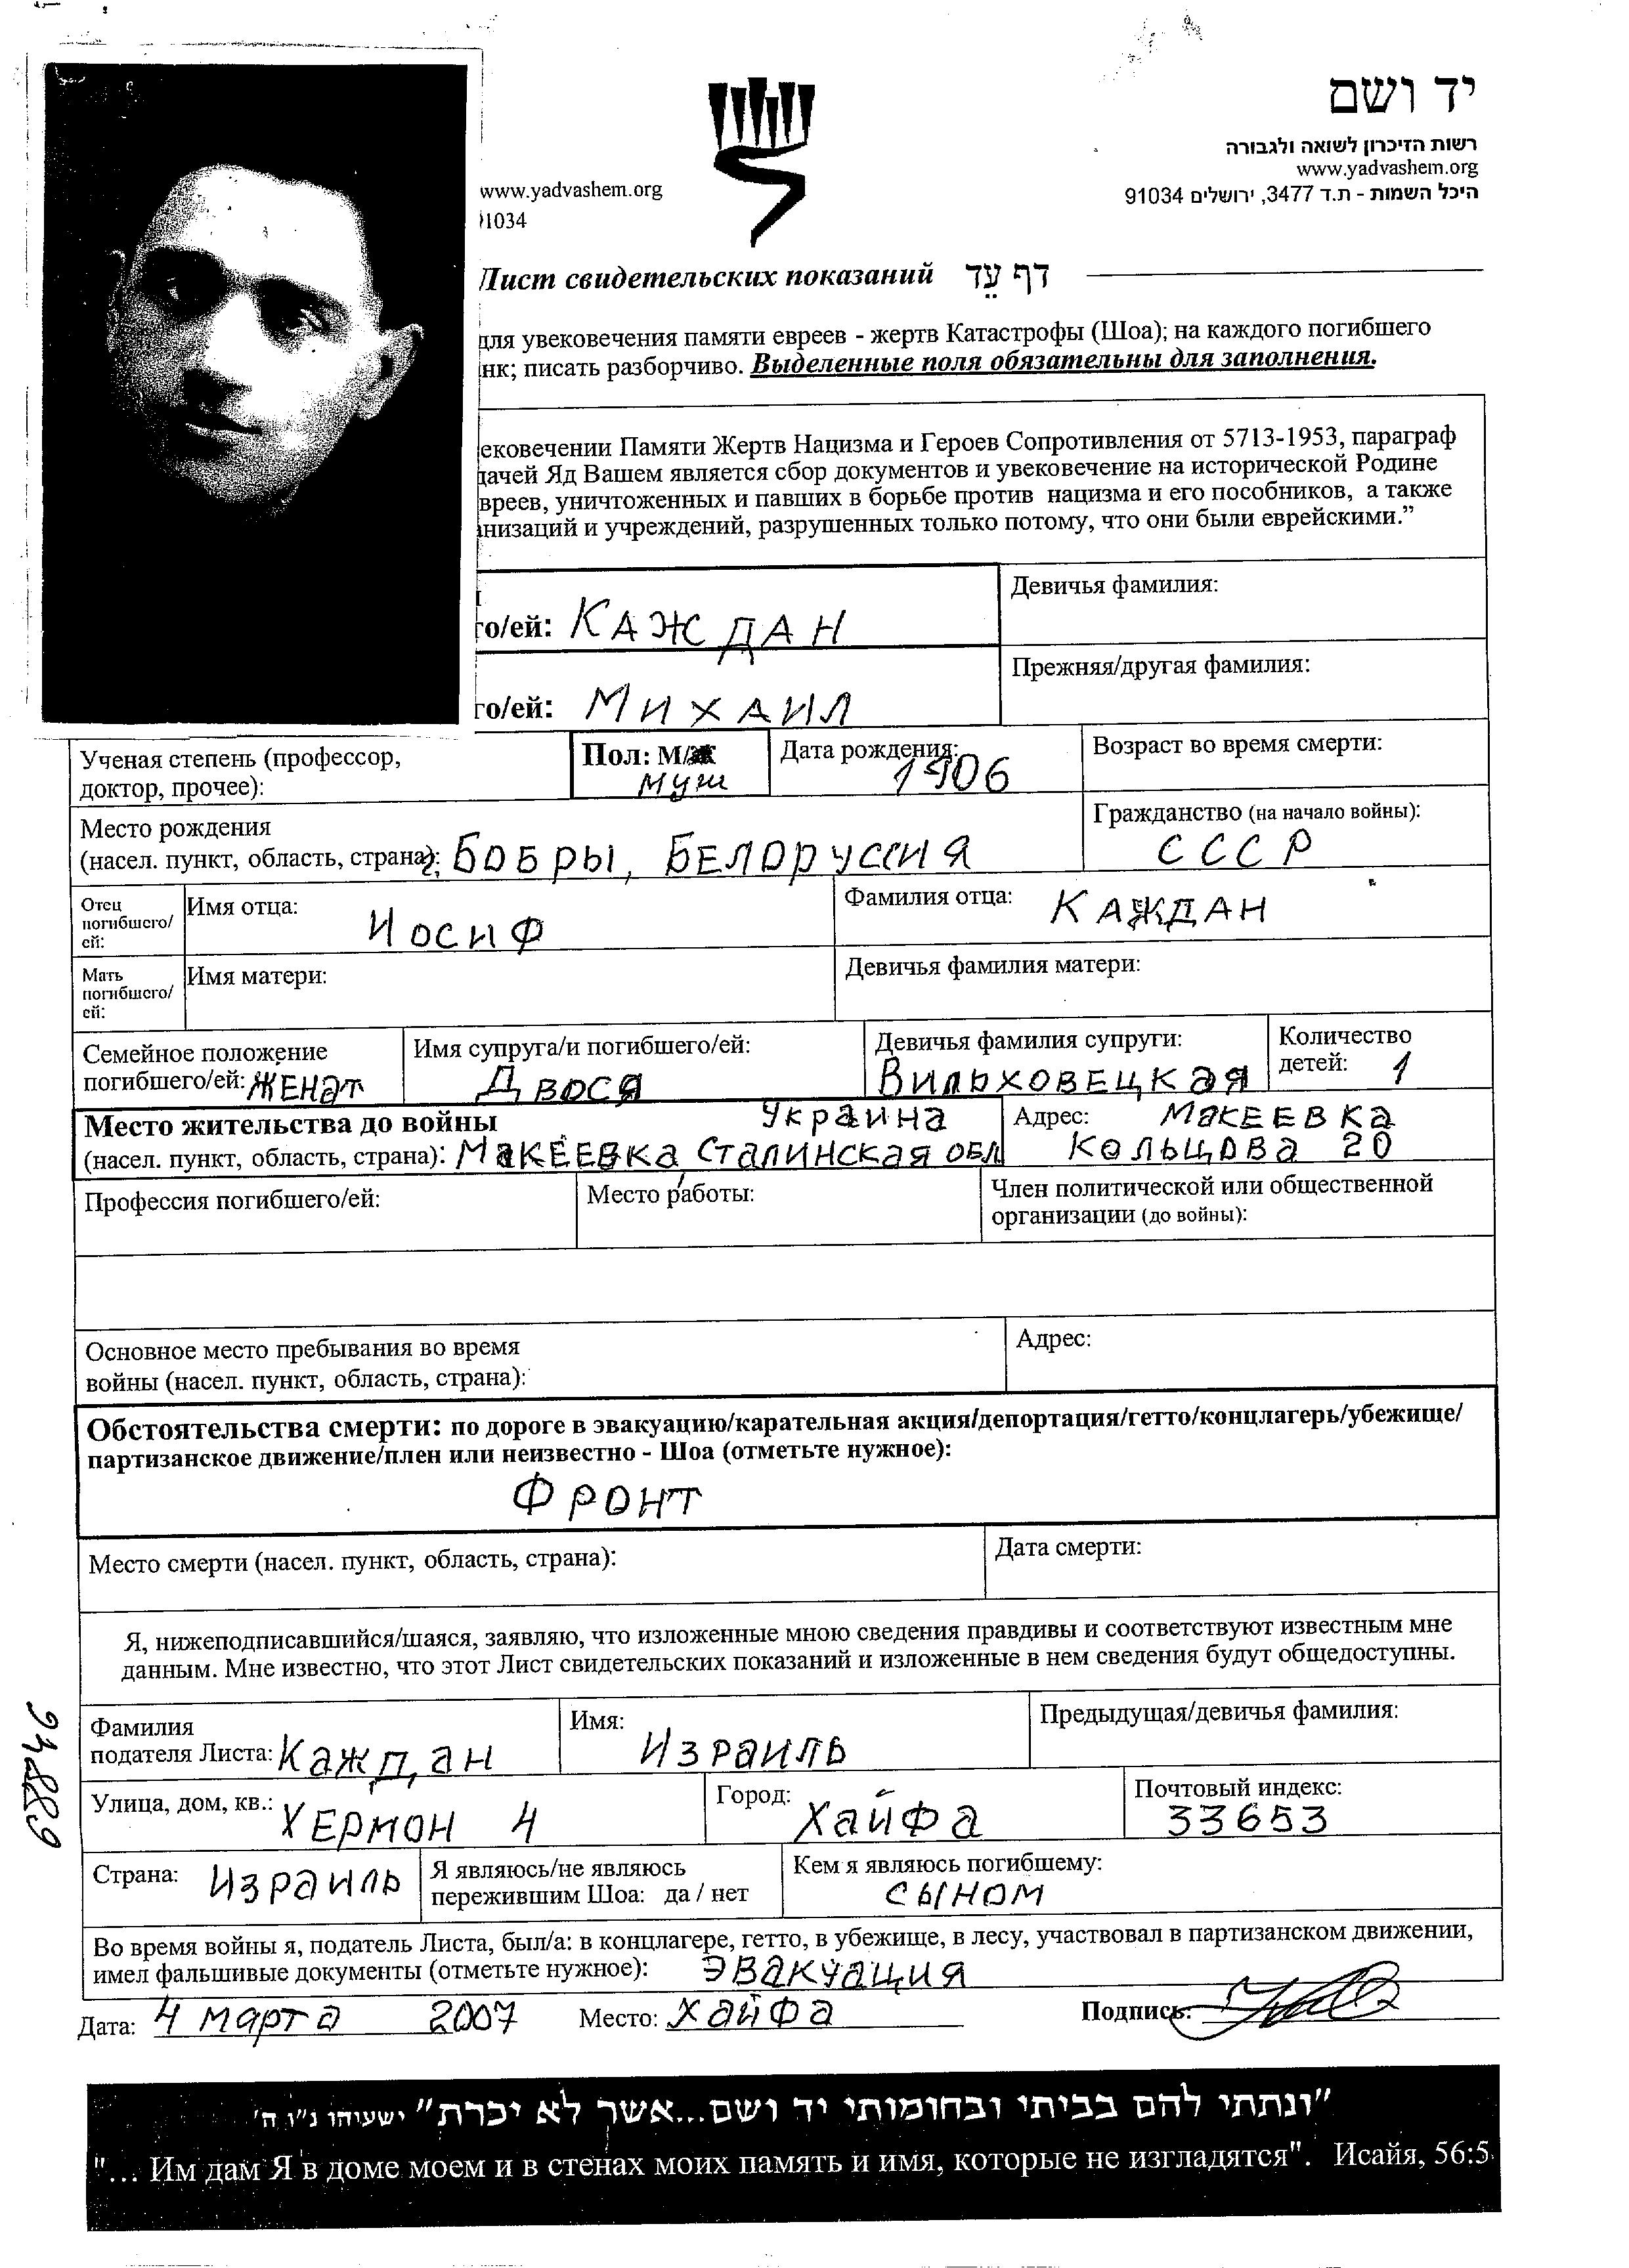 יד ושם
רשות הזיכרון לשואה ולגבורה
www.yadvashem.org
היכל השמות - ת.ד 3477, ירושלים 91034
www.yadvashem.org
91034
Лист свидетельских показаний דף עֵד
для увековечения памяти евреев - жертв Катастрофы (Шоа); на каждого погибшего
нк; писать разборчиво. Выделенные поля обязательны для заполнения.
ековечении Памяти Жертв Нацизма и Героев Сопротивления от 5713-1953, параграф
дачей Яд Вашем является сбор документов и увековечение на исторической Родине
вреев, уничтоженных и павших в борьбе против нацизма и его пособников, а также
низаций и учреждений, разрушенных только потому, что они были еврейскими.”
го/ей: КАЖДАН
Девичья фамилия:
го/ей: МИХАИЛ
Прежняя/другая фамилия:
Ученая степень (профессор,
доктор, прочее):
Пол: М/Ж
муж
Дата рождения:
1906
Возраст во время смерти:
Место рождения
(насел. пункт, область, страна): БОБРЫ, БЕЛОРУССИЯ
Гражданство (на начало войны):
СССР
Отец
погибшего/
ей:
Имя отца:
ИОСИФ
Фамилия отца: КАЖДАН
Мать
погибшего/
ей:
Имя матери:
Девичья фамилия матери:
Семейное положение
погибшего/ей: ЖЕНаТ
Имя супруга/и погибшего/ей:
ДВОСЯ
Девичья фамилия супруги:
ВИЛЬХОВЕЦКАЯ
Количество
детей: 1
Место жительства до войны Украина
(насел. пункт, область, страна): МаКЕЕВКа, СТалИНСКая ОБЛ
Адрес: МаКЕЕВКа
КОЛЬЦОВа 20
Профессия погибшего/ей:
Место работы:
Член политической или общественной
организации (до войны):
Основное место пребывания во время
войны (насел. пункт, область, страна):
Адрес:
Обстоятельства смерти: по дороге в эвакуацию/карательная акция/депортация/гетто/концлагерь/убежище/
партизанское движение/плен или неизвестно - Шоа (отметьте нужное):
ФРОНТ
Место смерти (насел. пункт, область, страна):
Дата смерти:
Я, нижеподписавшийся/шаяся, заявляю, что изложенные мною сведения правдивы и соответствуют известным мне
данным. Мне известно, что этот Лист свидетельских показаний и изложенные в нем сведения будут общедоступны.
Фамилия
подателя Листа: Каждан
Имя:
ИЗРаИЛЬ
Предыдущая/девичья фамилия:
Улица, дом, кв.:
ХЕРМОН 4
Город:
Хайфа
Почтовый индекс:
33653
Страна: ИЗРаИЛЬ
Я являюсь/не являюсь
пережившим Шоа: да / нет
Кем я являюсь погибшему:
СЫНОМ
Во время войны я, податель Листа, был/а: в концлагере, гетто, в убежище, в лесу, участвовал в партизанском движении,
имел фальшивые документы (отметьте нужное): ЭВаКУаЦИЯ
Дата: 4 марта 2007 Место: Хайфа Подпись:
"ונתתי להם בביתי ובחומותי יד ושם...אשר לא יכרת" ישעיהו נ"ו ה'
"... Им дам Я в доме моем и в стенах моих память и имя, которые не изгладятся". Исайя, 56:5